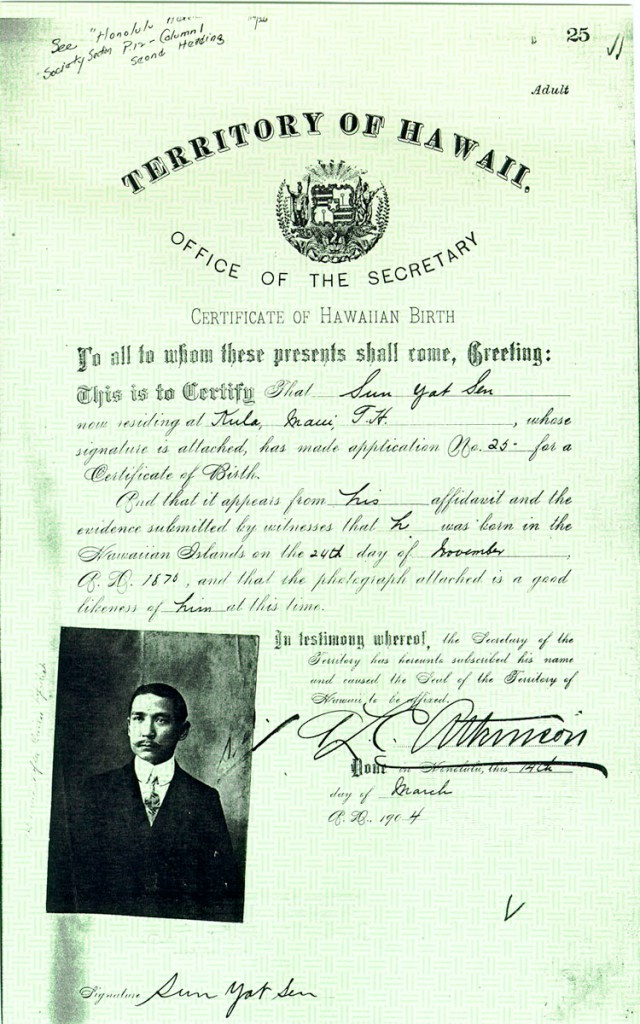 See "Honolulu
Society Section P12 - Column 1
Second Heading
25
Adult
TERRITORY OF HAWAII.
OFFICE OF THE SECRETARY
CERTIFICATE OF HAWAIIAN BIRTH
To all to whom these presents shall come, Greeting:
This is to Certify That Sun Yat Sen
now residing at Kula, Maui, T.H. , whose
signature is attached, has made application No. 25- for a
Certificate of Birth.
And that it appears from his affidavit and the
evidence submitted by witnesses that h was born in the
Hawaiian Islands on the 24th day of November ,
A.D. 1870, and that the photograph attached is a good
likeness of him at this time.
In testimony whereof, the Secretary of the
Territory has hereunto subscribed his name
and caused the Seal of the Territory of
Hawaii to be affixed.
A L C Atkinson
Done in Honolulu, this 14th
day of March
A.D., 1904
Signature Sun Yat Sen